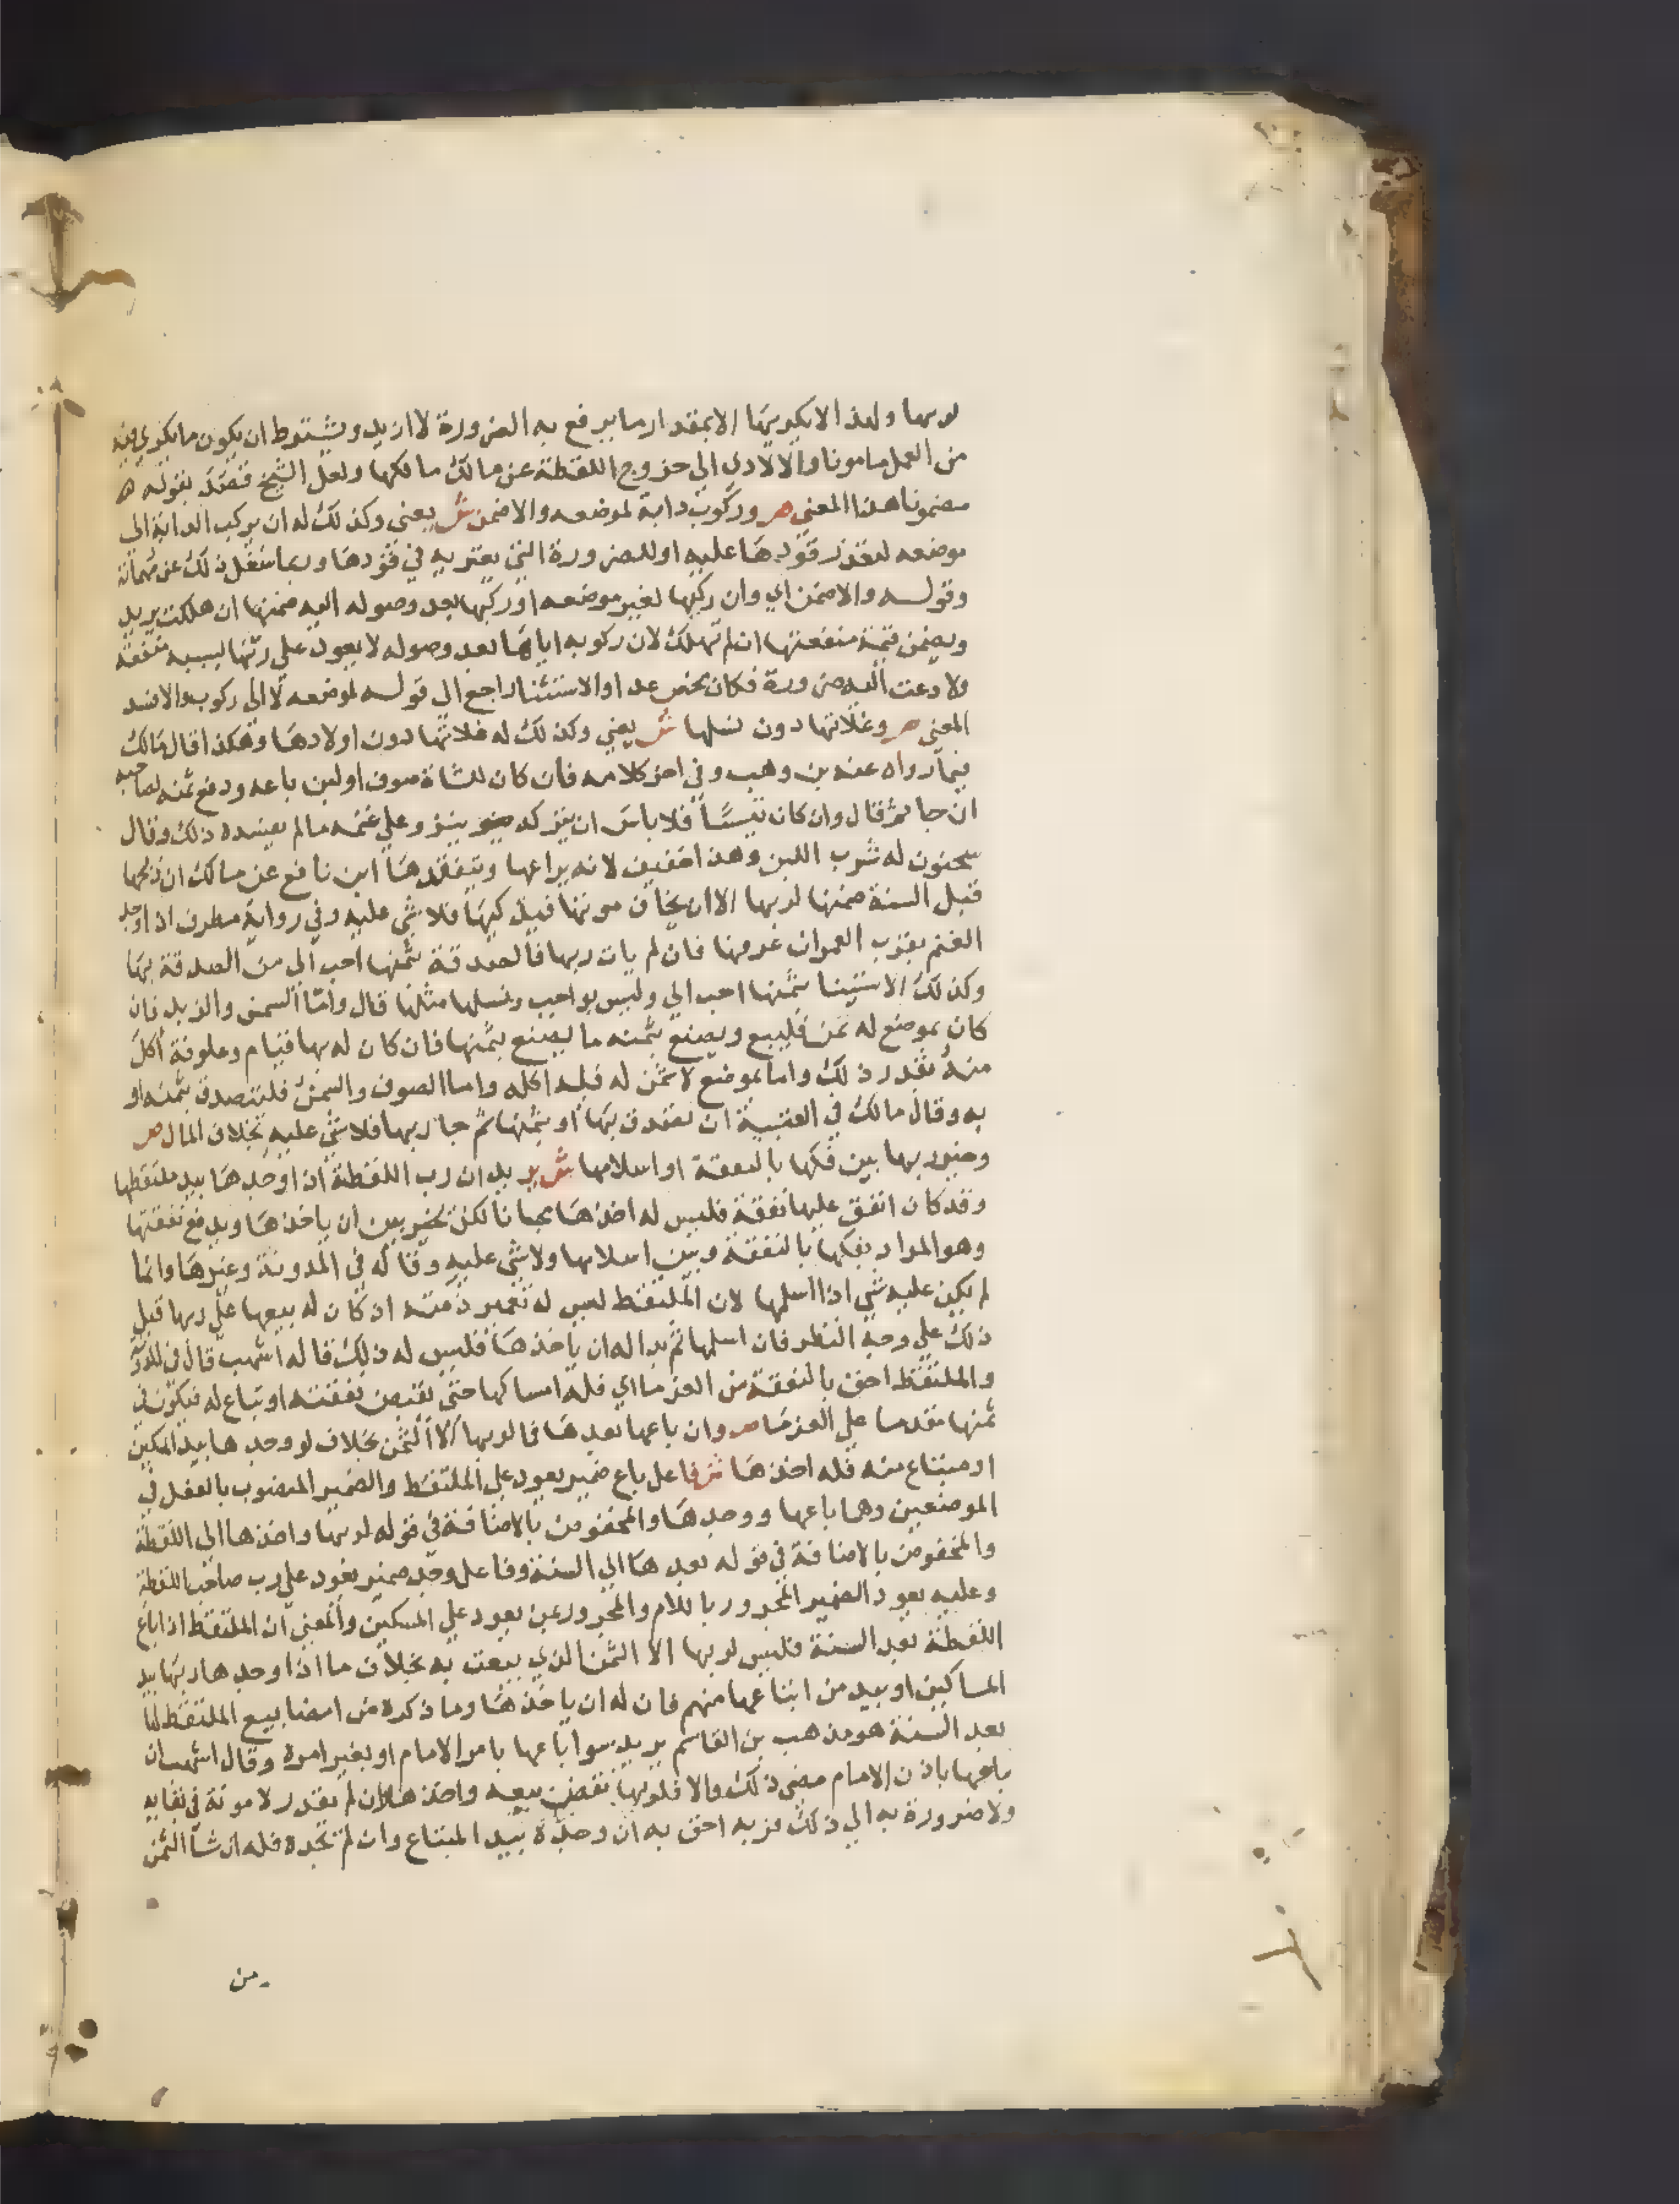 لربها ولهذا لا يكريها الا بمقدار ما يرفع به الضرورة لا ازيد ويشترط ان يكون ما يكري فيه
من العمل مامونا والا لادي الي خروج اللقطة عن مالك مالكها ولعل الشيخ قصد بقوله
مضمونا هذا المعني ص وركوب دابة لموضعه والا ضمن ش يعني وكذلك له ان يركب الدابة الي
موضعه لتعذر قودها عليه او للضرورة التي يعتريه في قودها وربما شغل ذلك عن مهماته
وقوله والا ضمن اي وان ركبها لغير موضعه او ركبها بعد وصوله اليه ضمنها ان هلكت يريد
ويضمن قيمة منفعتها ان لم تهلك لان ركوبه اياها بعد وصوله لا يعود علي ربها بسببه منفعة
ولا دعت اليه ضرورة فكان محض عدا والاستثنا راجع الي قوله لموضعه لا الي ركوب والا فسد
المعني ص وغلاتها دون نسلها ش يعني وكذلك له غلاتها دون اولادها وهكذا قال مالك
فيما رواه عنه بن وهب وفي اخر كلامه فان كان للشاة صوف او لبن باعه ودفع ثمنه لصاحبه
ان جا ثم قال وان كان تيسًا فلا باس ان يتركه ينزو علي غنمه ما لم يفسده ذلك وقال
سحنون له شرب اللبن وهذا خفيف لانه يراعها ويتفقدها ابن نافع عن مالك ان ذبحها
قبل السنة ضمنها لربها الا ان يخاف موتها فيذكيها فلا شي عليه وفي رواية مطرف اذا وجد
الغنم بقرب العمران عرفها فان لم يات ربها فالصدقة بثمنها احب الي من الصدقة بها
وكذلك الاستينا بثمنها احب الي وليس بواجب ونسلها مثلها قال واما السمن والزبد فان
كان بموضع له ثمن فليبع ويصنع بثمنه ما يصنع بثمنها فان كان له بها قيام وعلوفة اكل
منه بقدر ذلك واما بموضع لا ثمن له فله اكله واما الصوف والسمن فليتصدق بثمنه او
به وقال مالك في العتبية ان تصدق بها او بثمنها ثم جا ربها فلا شي عليه بخلاف المال ص
وخير ربها بين فكها بالنفقة او اسلامها ش يريد ان رب اللقطة اذا وجدها بيد ملتقطها
وقد كان انفق عليها نفقة فليس له اخذها مجانا لكن يخير بين ان ياخذها ويدفع نفقتها
وهو المراد بفكها بالنفقة وبين اسلامها ولا شي عليه وقاله في المدونة وغيرها وانما
لم يكن عليه شي اذا اسلمها لان الملتقط ليس له تعمير ذمته اذ كان له بيعها علي ربها قبل
ذلك علي وجه النظر فان اسلمها ثم بدا له ان ياخذها فليس له ذلك قاله اشهب قال في المدونة
والملتقط احق بالنفقة من الغرما اي فله امساكها حتي يقبض نفقته او تباع له فيكون في
ثمنها مقدما علي الغرما ص وان باعها بعدها فما لربها الا الثمن بخلاف لو وجدها بيد المسكين
او مبتاع منه فله اخذها ش فاعل باع ضمير يعود علي الملتقط والضمير المنصوب بالفعل في
الموضعين وهما باعها ووجدها والمخفوض بالاضافة في قوله لربها واخذها الي اللقطة
والمخفوض بالاضافة في قوله بعدها الي السنة وفاعل وجد ضمير يعود علي رب صاحب اللقطة
وعليه يعود الضمير المجرور باللام والمجرور بمن يعود علي المسكين والمعني ان الملتقط اذا باع
اللقطة بعد السنة فليس لربها الا الثمن الذي بيعت به بخلاف ما اذا وجدها ربها بيد
المساكين او بيد من ابتاعها منهم فان له ان ياخذها وما ذكره من امضا بيع الملتقط لها
بعد السنة هو مذهب بن القاسم يريد سوا باعها بامر الامام او بغير امره وقال اشهب ان
باعها باذن الامام مضي ذلك والا فلربها نقض بيعه واخذها لان لم يقدر لا مونة في بقايه
ولا ضرورة به الي ذلك فربه احق به ان وجده بيد المبتاع وان لم تجده فله ان شا الثمن
من